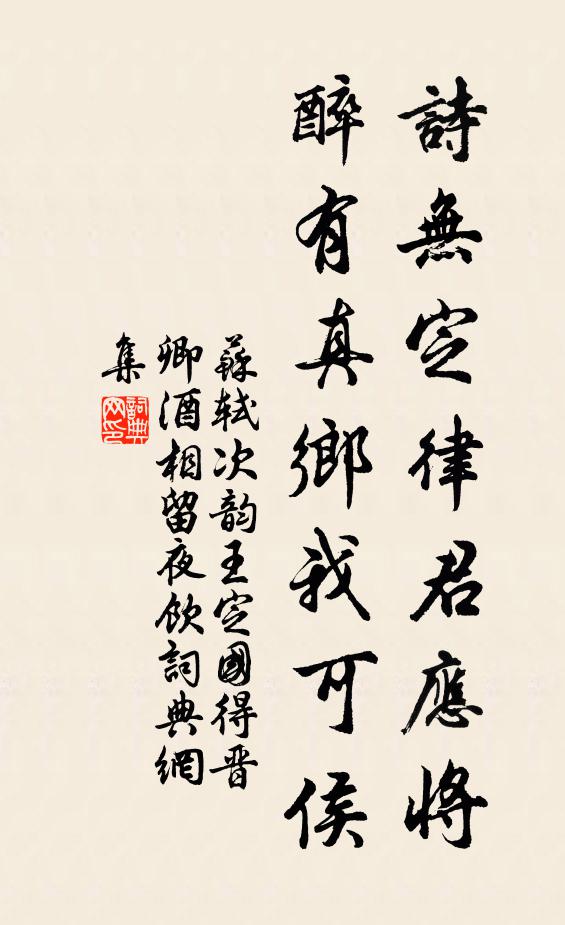 詩無定律君應將
醉有真鄉我可侯
蘇軾次韵王定國得晋
卿酒相留夜飲詞典網
集
詞典網印